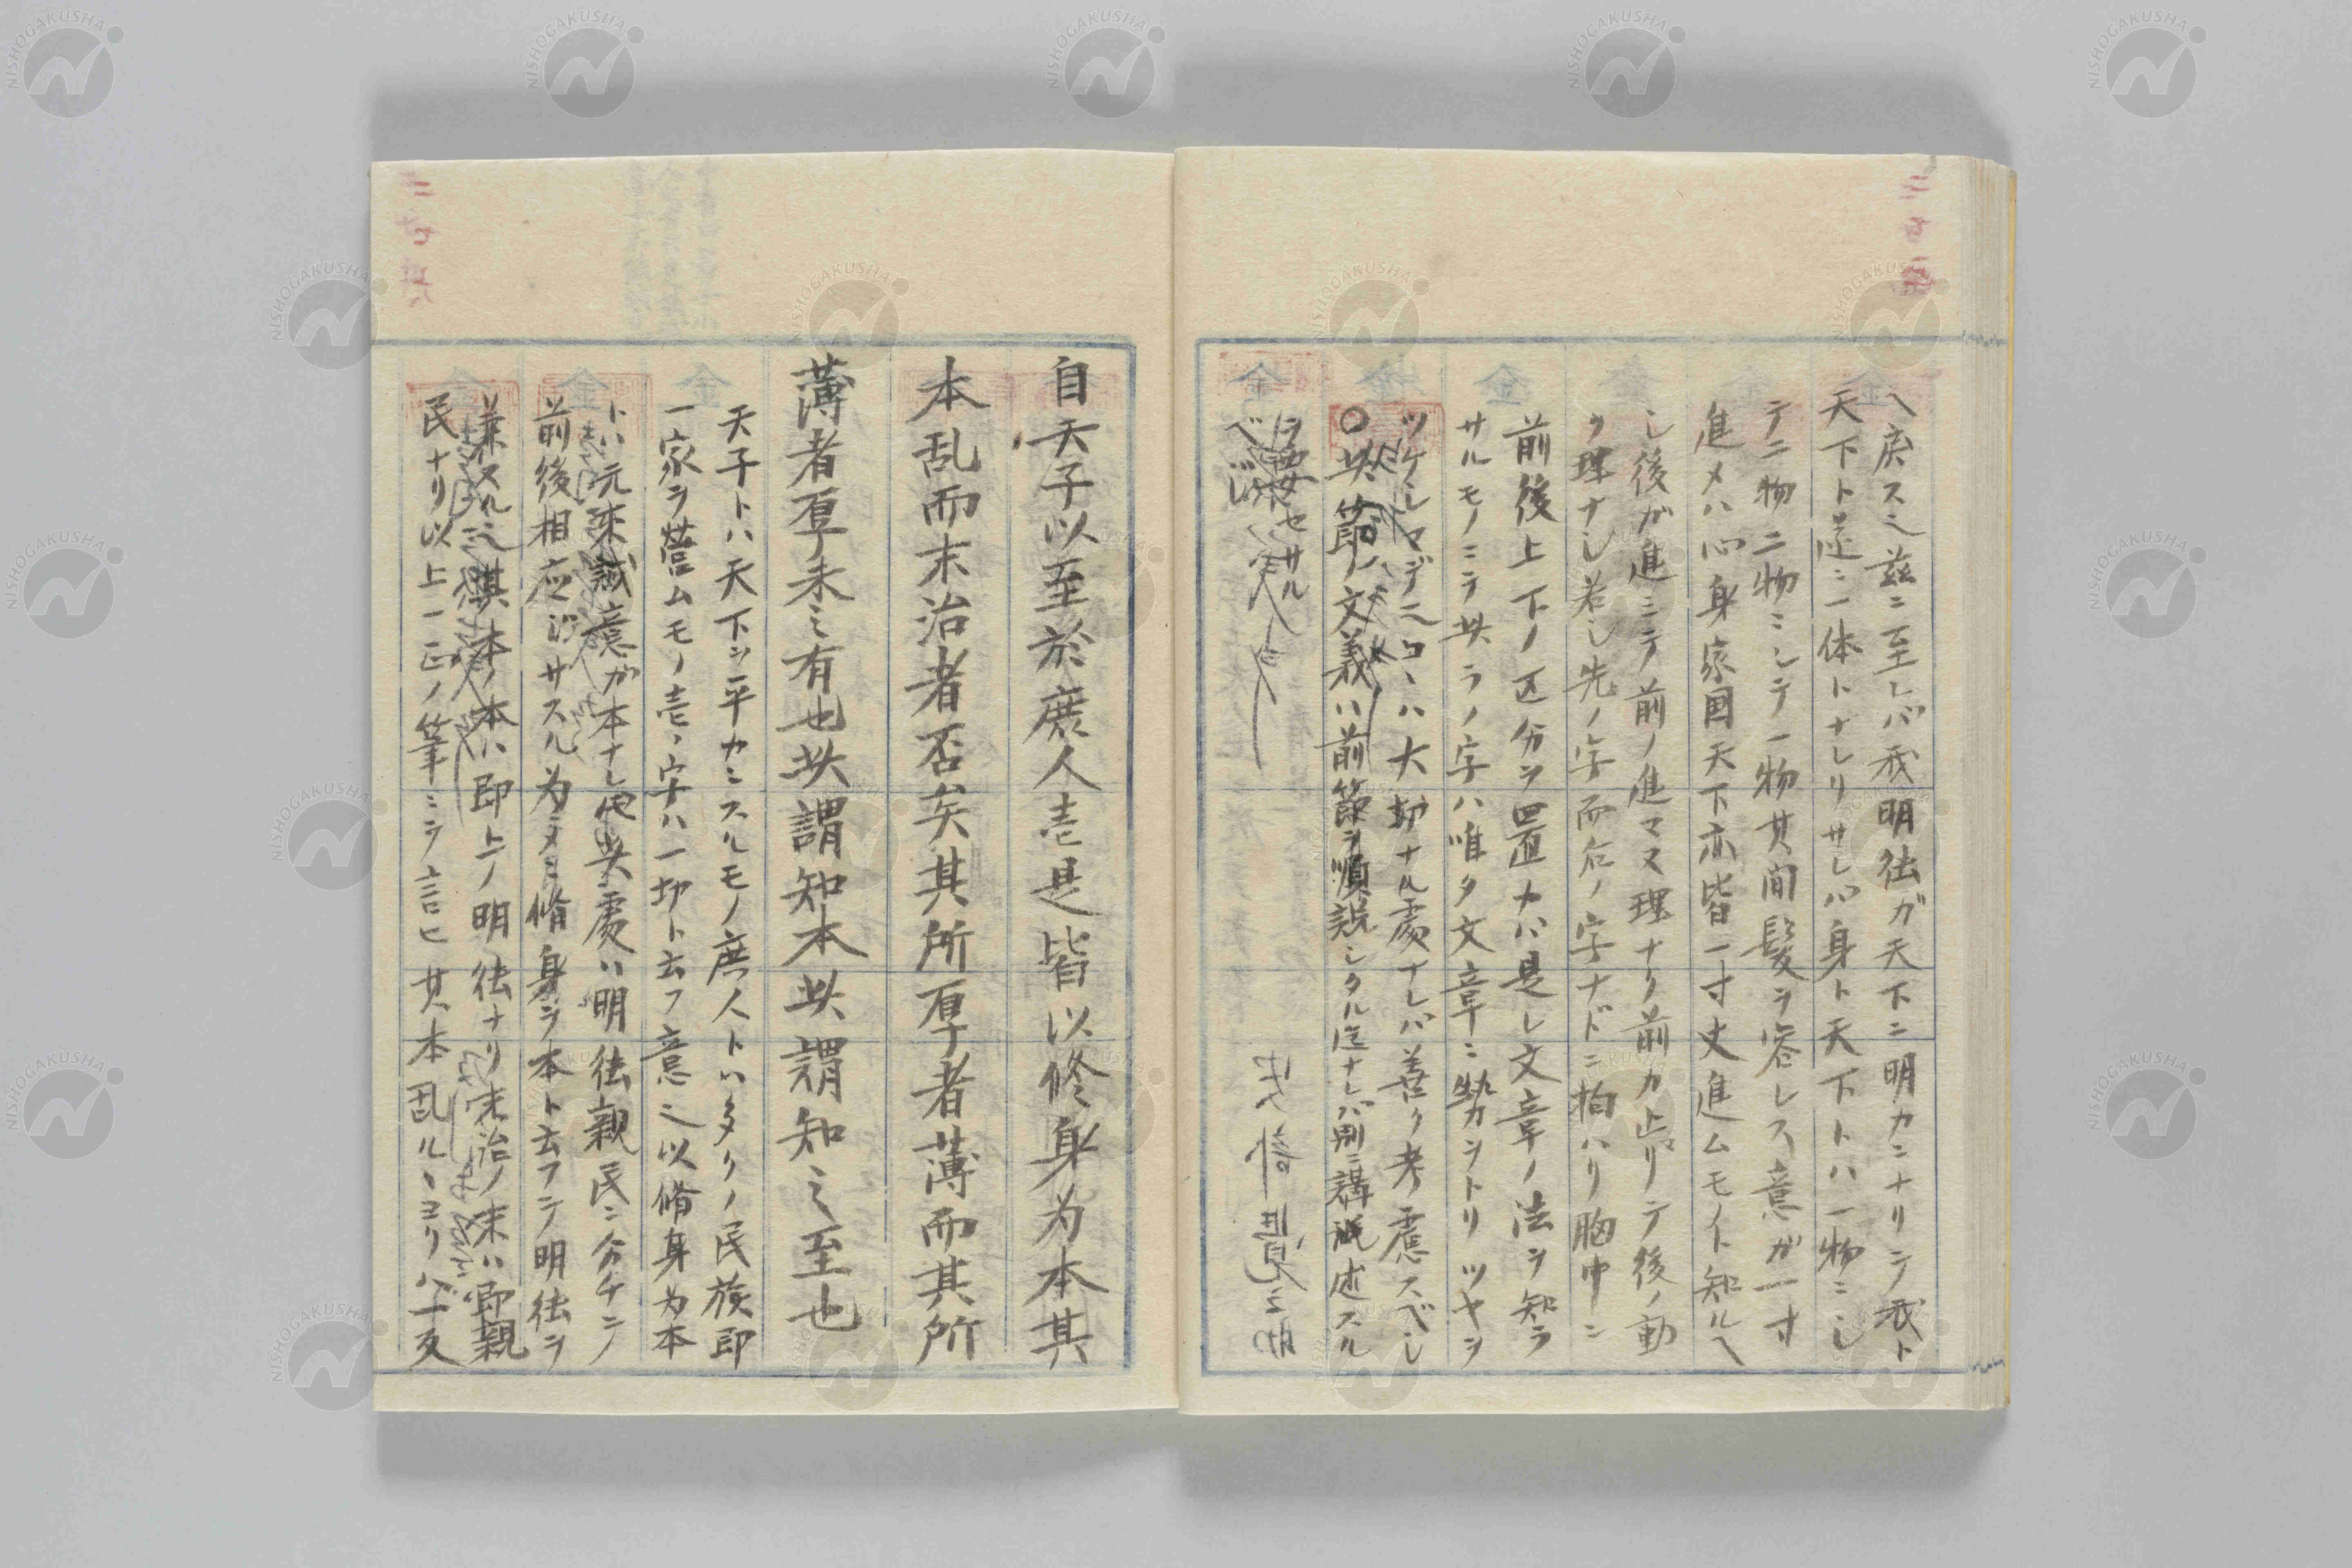 ヘ戻ス之茲ニ至レバ我明徳ガ天下ニ明カニナリテ我ト
天下ト遂ニ一体トナレリサレバ身ト天下トハ一物ニシ
テ二物二物ニシテ一物其間髪ヲ容レス意ガ一寸
進メハ心身家国天下亦皆一寸丈進ムモノト知ルヘ
シ後ガ進ミテ前ノ進マヌ理ナリ前カ止リテ後ノ動
ク理ナシ若シ先ノ字而后ノ字ナドニ拘ハリ胸中ニ
前後上下ノ区分ヲ置カバ是レ文章ノ法ヲ知ラ
サルモノニテ此ラノ字ハ唯タ文章ニ勢カントリツヤヲ
ツケシマデ之コヽハ大切ナル處ナレバ善ク考慮スベシ
〇此節ノ文義ハ前節ヲ順説シタル迄ナレバ別ニ講述スル
ヲ要セサル
ベシ
自天子以至於庶人壱是皆以修身为本其
本乱而末治者否矣其所厚者薄而其所
薄者厚未之有也此謂知本此謂知之至也
天子トハ天下ヲ平カニスルモノ庶人トハ多クノ民族即
一家ヲ営ムモノ壱ノ字ハ一切ト云フ意之以脩身为本
トハ元来誠意ガ本ナレ𪜈此處ハ明徳親民ニ分チテ
前後相応ジサスル为メニ脩身ヲ本ト云フテ明徳ヲ
兼スル之其本ノ本ハ即上ノ明徳ナリ末治ノ末ハ即親
民ナリ以上一正ノ筆ニテ言ヒ其本乱ルヽヨリハ一反
NISHOGAKUSHA